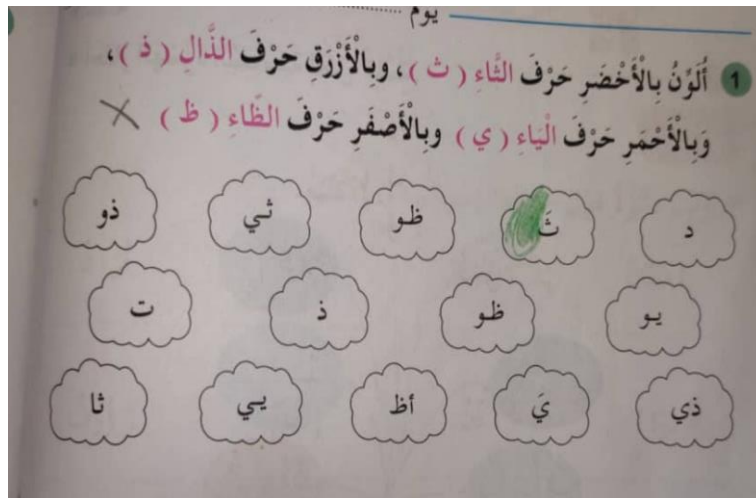 يوم ..............
1 أُلَوِّنُ بِالْأَخْضَرِ حَرْفَ الثَّاءِ ( ث )، وبِالْأَزْرَقِ حَرْفَ الذَّالِ ( ذ )،
وَبِالْأَحْمَرِ حَرْفَ الْيَاءِ ( ي ) وبِالْأَصْفَرِ حَرْفَ الظَّاءِ ( ظ )
د ثَ ظو ثي ذو
يو ظو ذ ت
ذي يَ أظ يي ثا